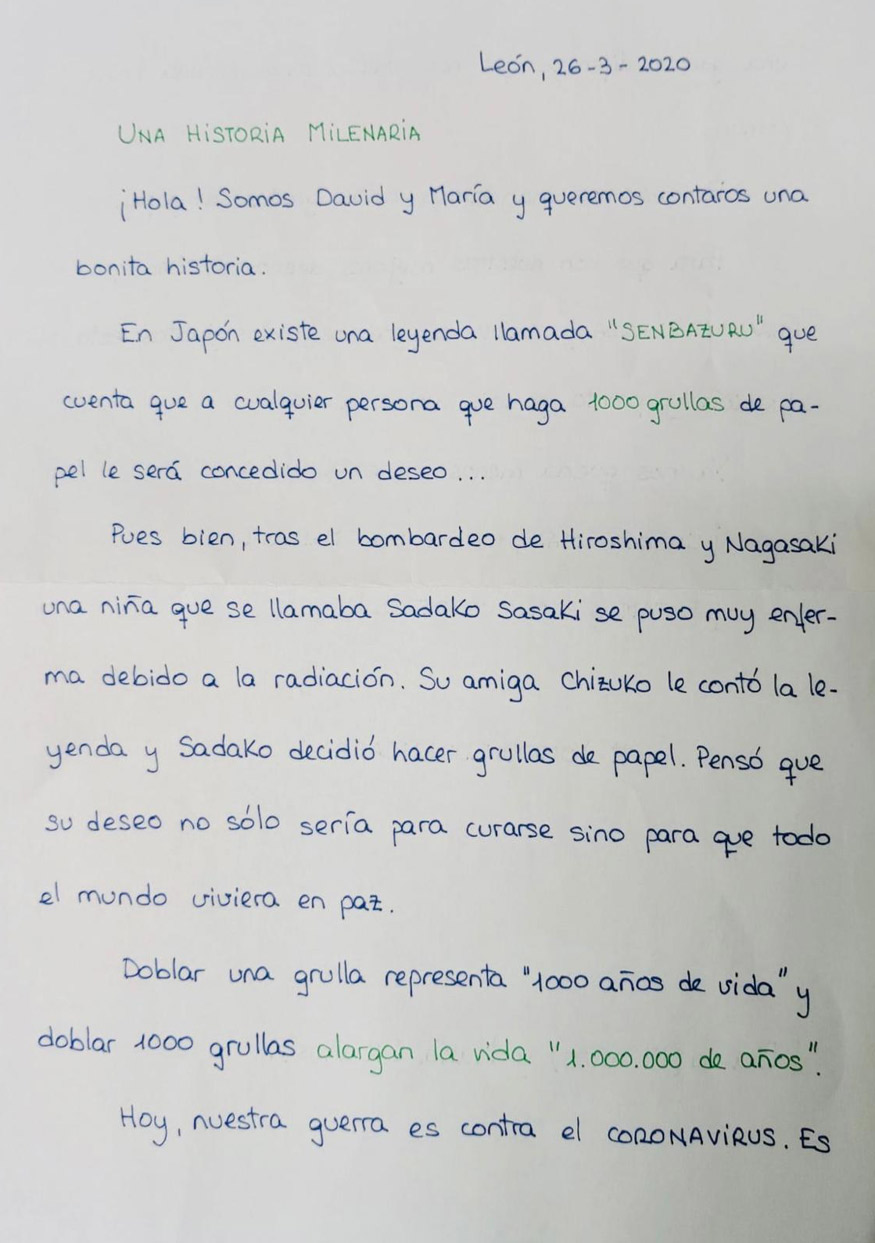 León, 26-3-2020
UNA HISTORIA MILENARIA
¡Hola! Somos David y María y queremos contaros una
bonita historia.
En Japón existe una leyenda llamada "SENBAZURU" que
cuenta que a cualquier persona que haga 1000 grullas de pa-
pel le será concedido un deseo...
Pues bien, tras el bombardeo de Hiroshima y Nagasaki
una niña que se llamaba Sadako Sasaki se puso muy enfer-
ma debido a la radiación. Su amiga Chizuko le contó la le-
yenda y Sadako decidió hacer grullas de papel. Pensó que
su deseo no sólo sería para curarse sino para que todo
el mundo viviera en paz.
Doblar una grulla representa "1000 años de vida" y
doblar 1000 grullas alargan la vida "1.000.000 de años".
Hoy, nuestra guerra es contra el CORONAVIRUS. Es